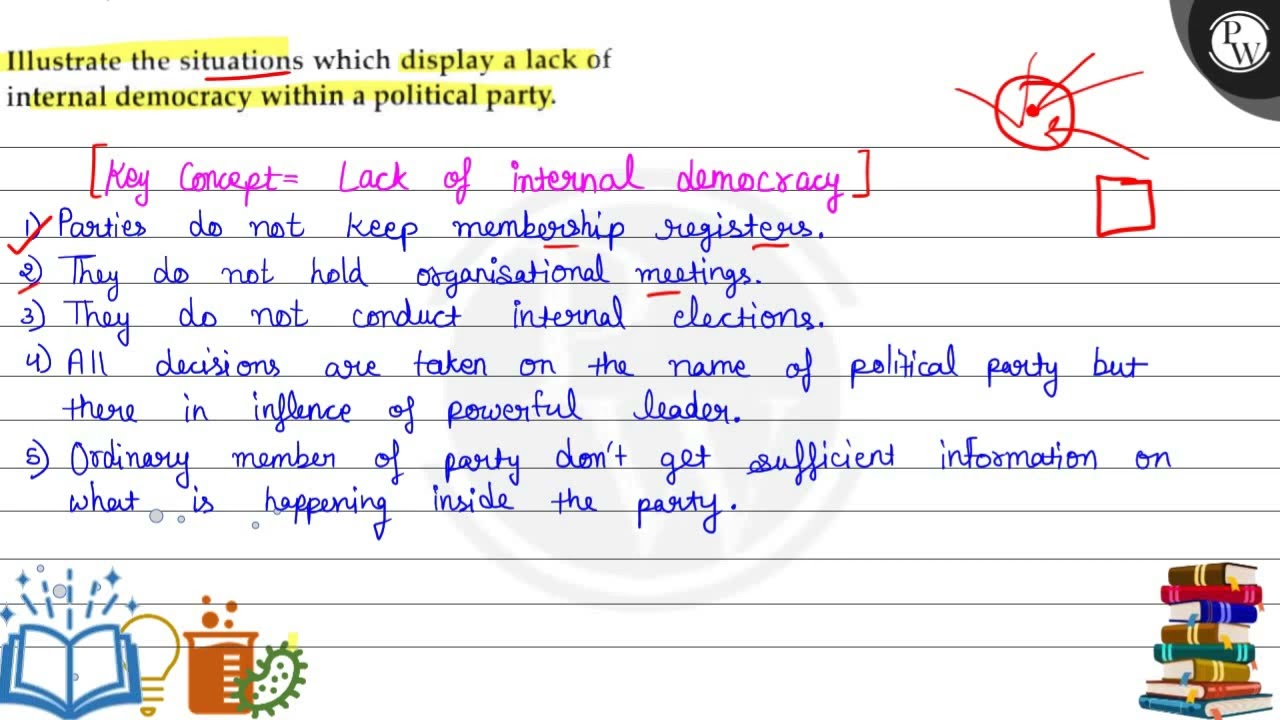 Illustrate the situations which display a lack of
internal democracy within a political party.
PW
[Key Concept= Lack of internal democracy]
1) Parties do not keep membership registers.
2) They do not hold organisational meetings.
3) They do not conduct internal elections.
4) All decisions are taken on the name of political party but
there in inflence of powerful leader.
5) Ordinary member of party don't get sufficient information on
what is happening inside the party.